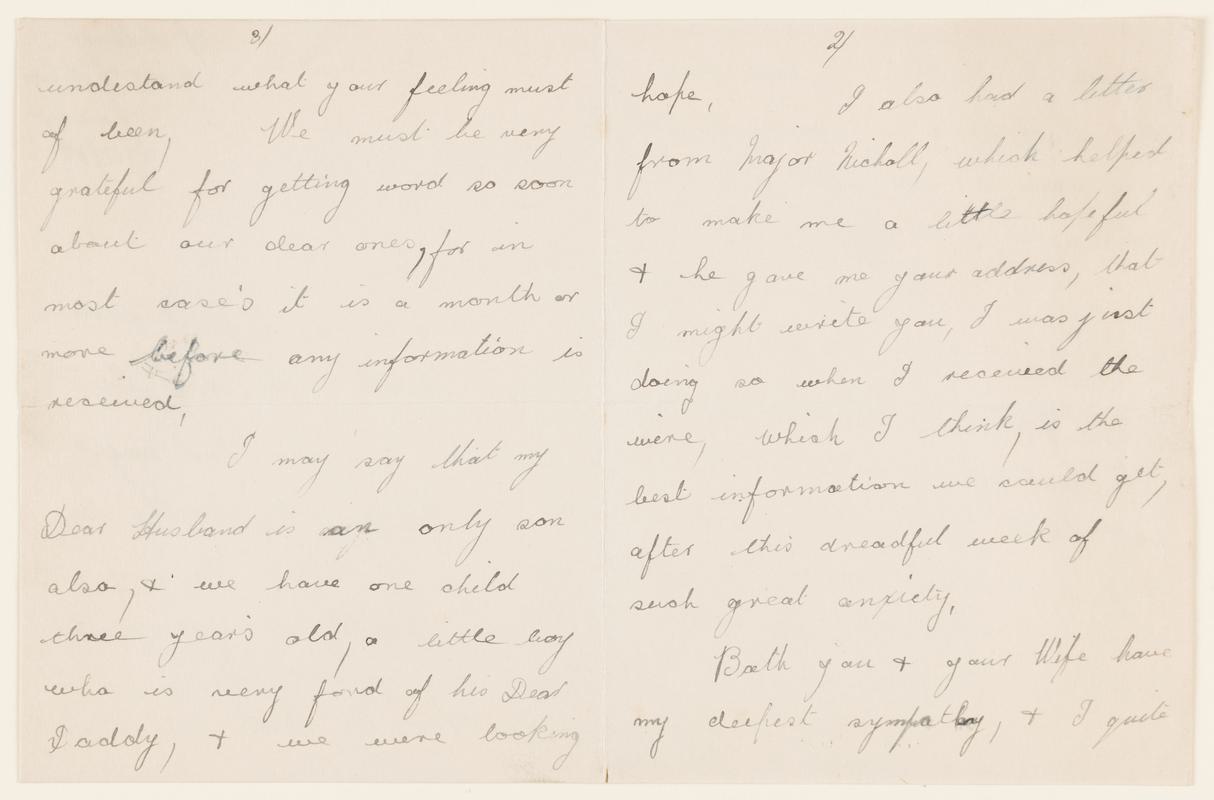 2/
hope, I also had a letter
from Major Nicholl, which helped
to make me a little hopeful
& he gave me your address, that
I might write you, I was just
doing so when I received the
wire, which I think, is the
best information we could get,
after this dreadful week of
such great anxiety,
Both you & your Wife have
my deepest sympathy, & I quite
3/
understand what your feeling must
of been, We must be very
grateful for getting word so soon
about our dear ones, for in
most case's it is a month or
more before any information is
received,
I may say that my
Dear Husband is an only son
also, & we have one child
three year's old, a little boy
who is very fond of his Dear
Daddy, & we were looking